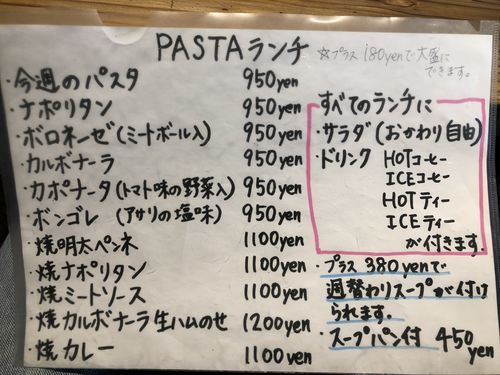 PASTAランチ
☆プラス180yenで大盛に
できます。
・今週のパスタ 950yen
・ナポリタン 950yen
・ボロネーゼ(ミートボール入) 950yen
・カルボナーラ 950yen
・カポナータ(トマト味の野菜入) 950yen
・ボンゴレ(アサリの塩味) 950yen
・焼明太ペンネ 1100yen
・焼ナポリタン 1100yen
・焼ミートソース 1100yen
・焼カルボナーラ生ハムのせ 1200yen
・焼カレー 1100yen
すべてのランチに
・サラダ(おかわり自由)
・ドリンク HOTコーヒー
ICEコーヒー
HOTティー
ICEティー
が付きます。
・プラス380yenで
週替わりスープが付け
られます。
・スープパン付 450yen